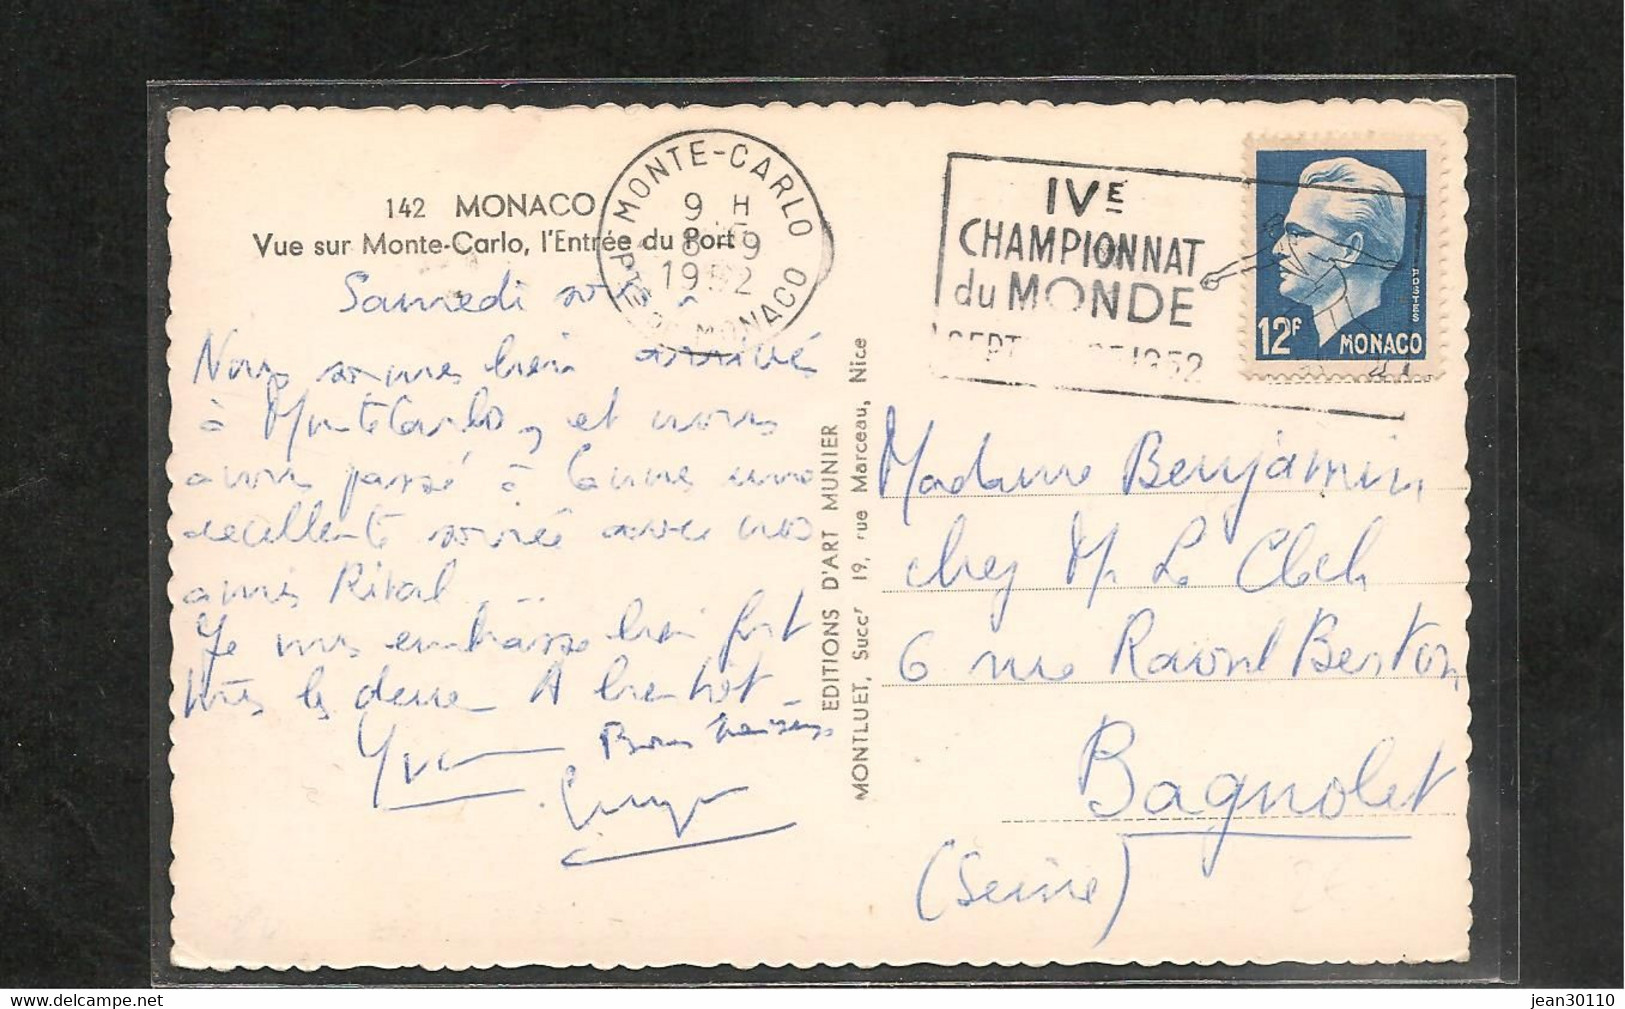 142 MONACO
Vue sur Monte-Carlo, l'Entrée du Port
MONTE-CARLO
9 H
8-9
1952
PTÉ DE MONACO
IVE
CHAMPIONNAT
du MONDE
SEPT 1952
POSTES
12F MONACO
Samedi soir
Nous sommes bien arrivés
à Monte Carlo, et nous
avons passé à Cannes une
excellente soirée avec nos
amis Rival...
Je vous embrasse bien fort
tous les deux A bientôt
Yvonne
Bons baisers
EDITIONS D'ART MUNIER
MONTLUET, Succr 19, rue Marceau, Nice
Madame Benjamin
chez Mr Le Clech
6 rue Raoul Berton
Bagnolet
(Seine)
delcampe.net
jean30110